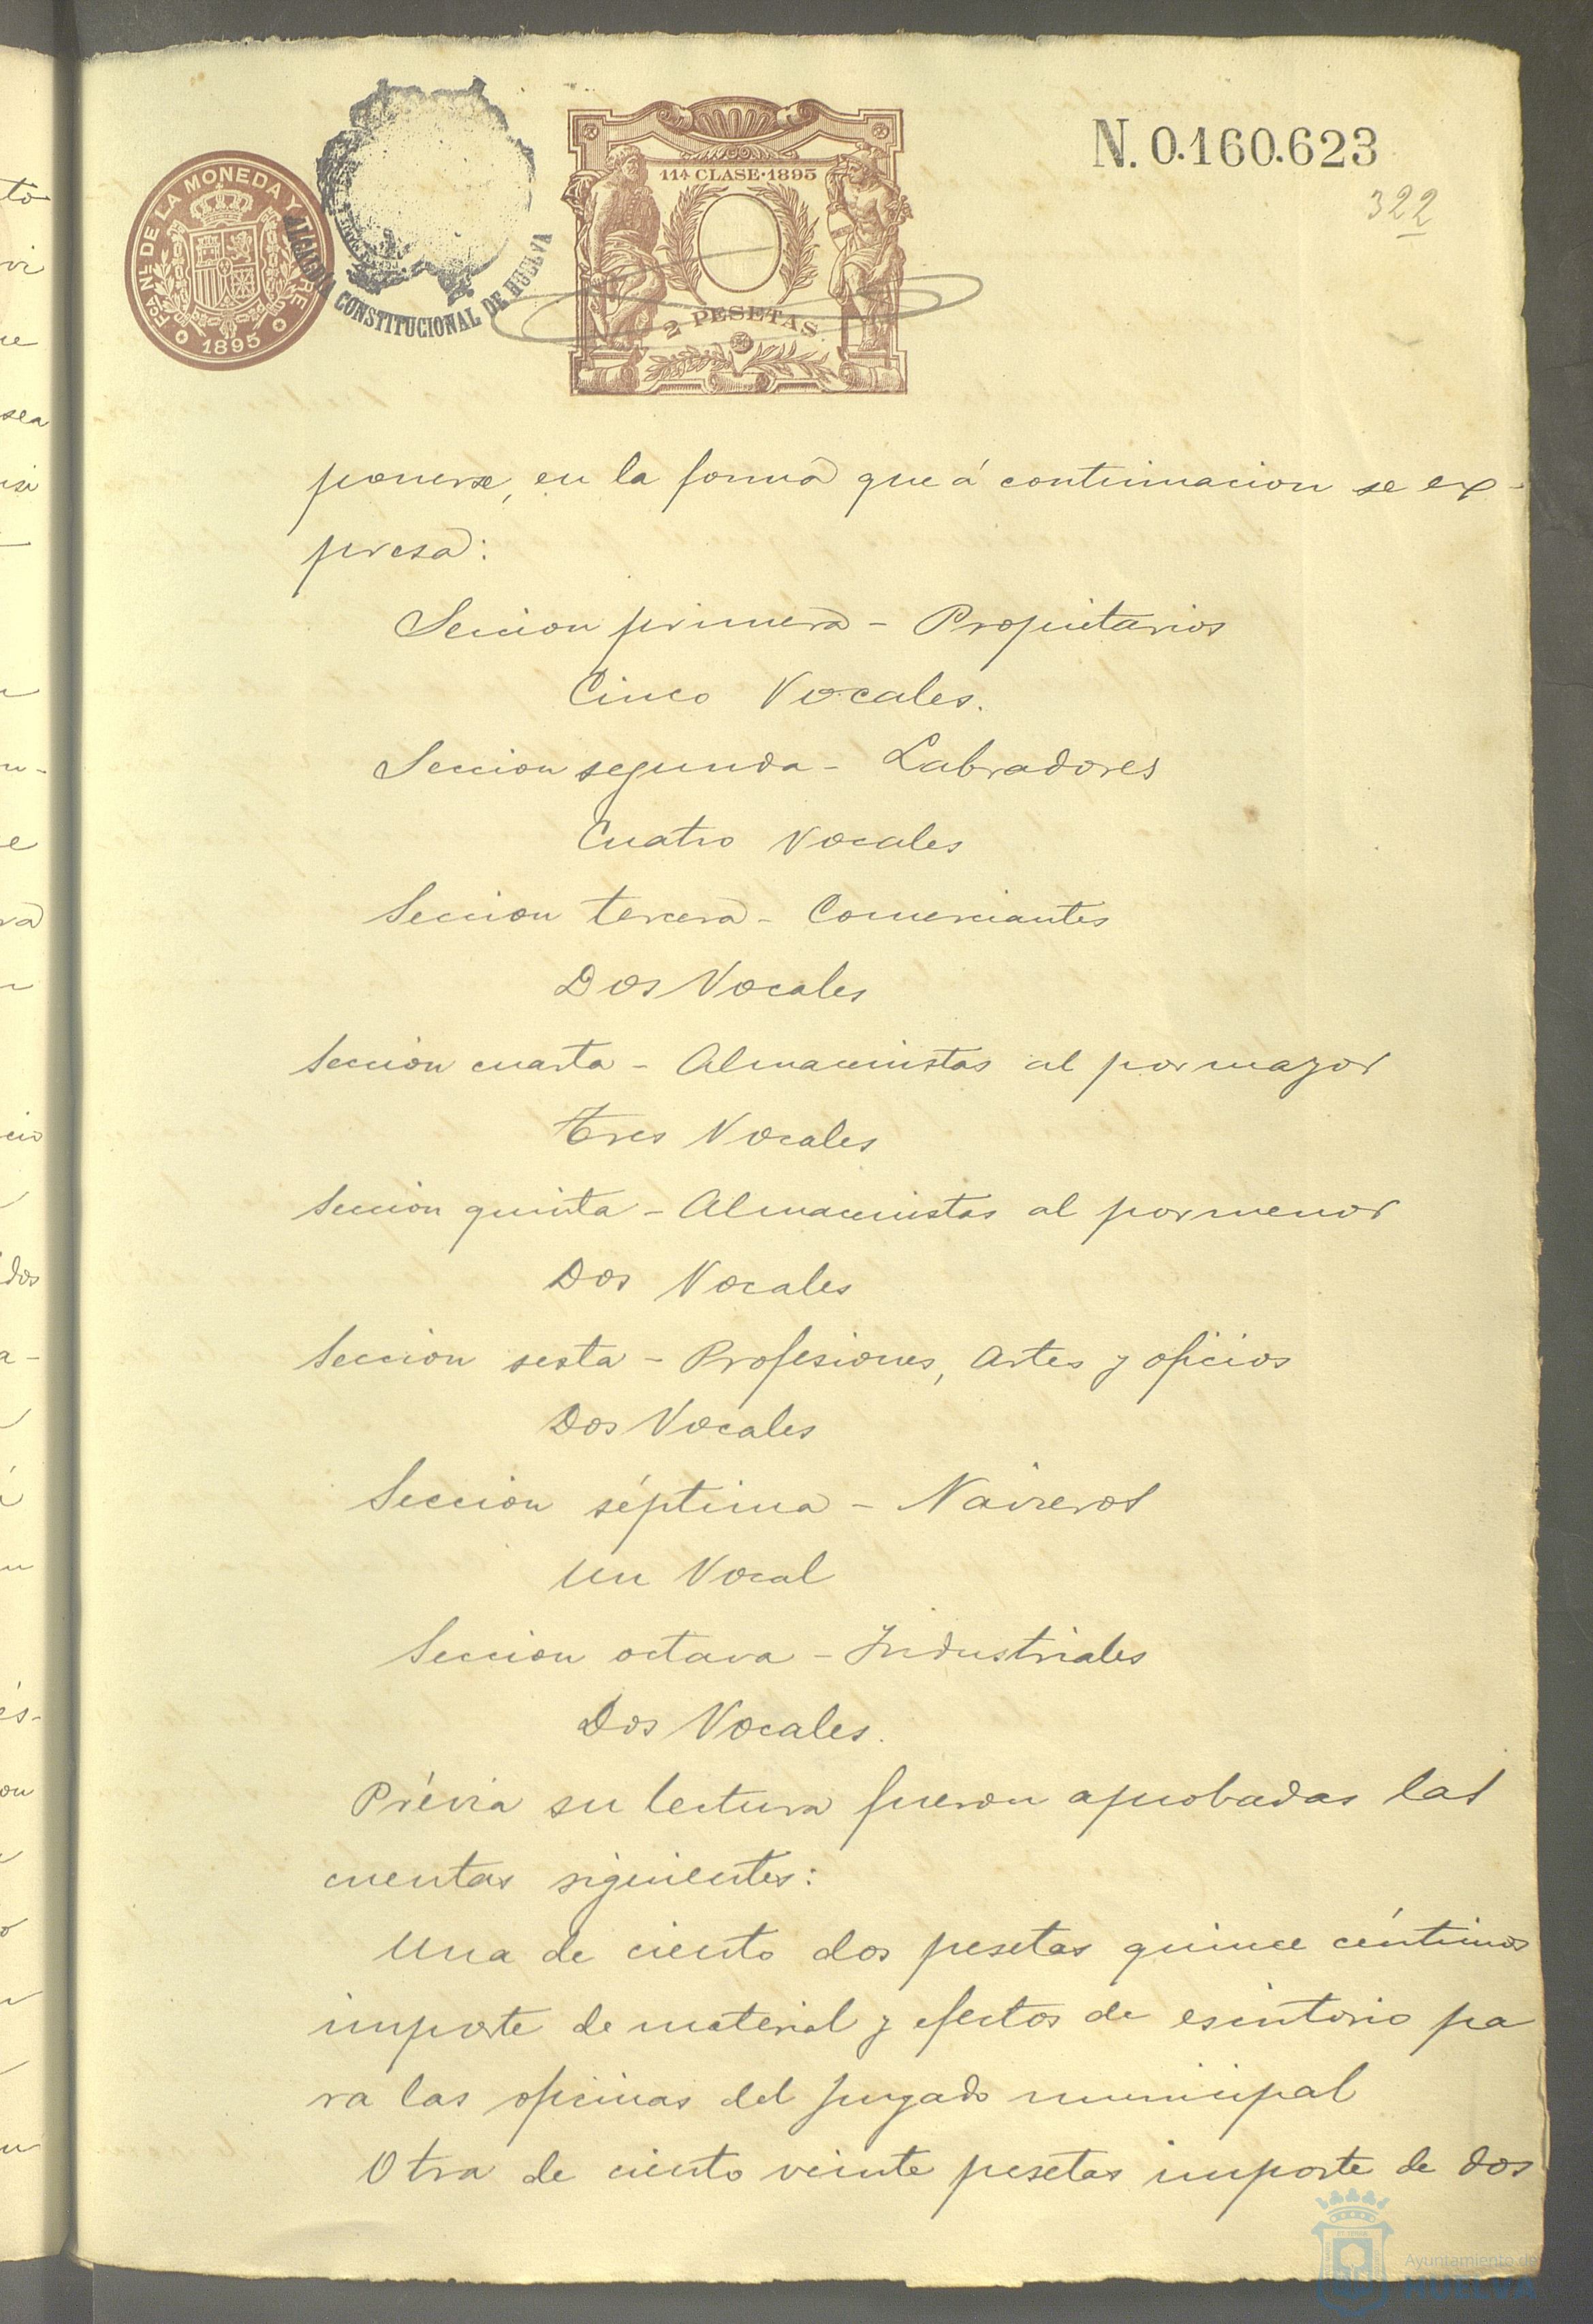 FCA. NL. DE LA MONEDA Y TIMBRE
1895
ALCALDIA CONSTITUCIONAL DE HUELVA
11ª CLASE·1895
2 PESETAS
N. 0.160.623
322
ponerse, en la forma que á continuacion se ex-
presa:
Seccion primera - Propietarios
Cinco Vocales.
Seccion segunda - Labradores
Cuatro Vocales
Seccion tercera - Comerciantes
Dos Vocales
Seccion cuarta - Almacenistas al por mayor
Tres Vocales
Seccion quinta - Almacenistas al por menor
Dos Vocales
Seccion sesta - Profesiones, Artes y oficios
Dos Vocales
Seccion séptima - Navieros
Un Vocal
Seccion octava - Industriales
Dos Vocales.
Prévia su lectura fueron aprobadas las
cuentas siguientes:
Una de ciento dos pesetas quince céntimos
importe de material y efectos de escritorio pa
ra las oficinas del Juzgado municipal
Otra de ciento veinte pesetas importe de dos
Ayuntamiento de
HUELVA